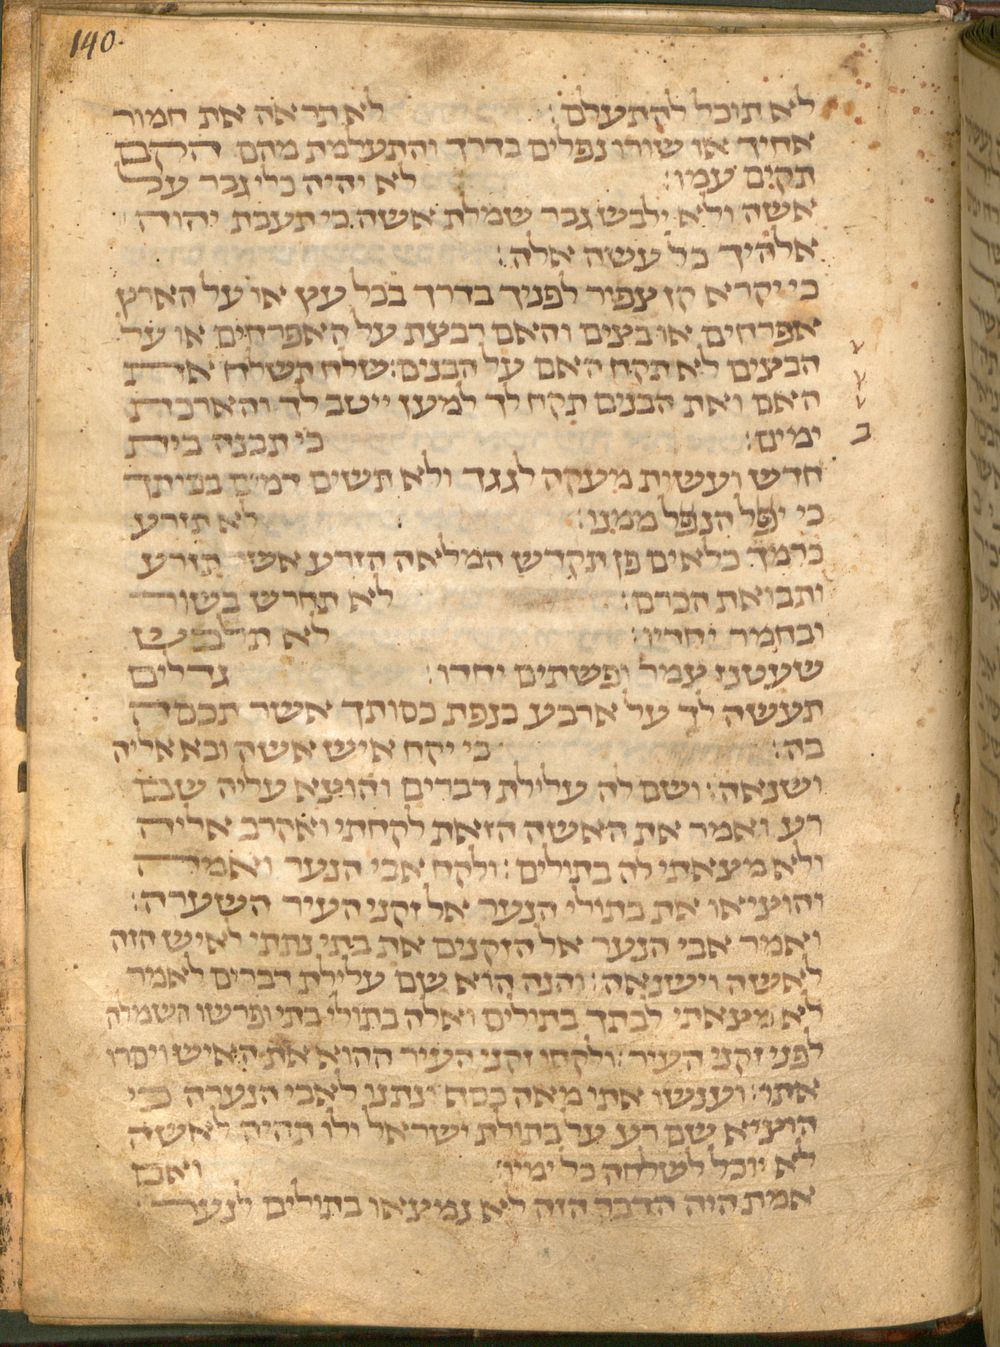 140
לא תוכל להתעלם : לא תראה את חמור
אחיך או שורו נפלים בדרך והתעלמת מהם הקם
תקים עמו : לא יהיה כלי גבר על
אשה ולא ילבש גבר שמלת אשה כי תעבת יהוה
אלהיך כל עשה אלה :
כי יקרא קן צפור לפניך בדרך בכל עץ או על הארץ
אפרחים או בצים והאם רבצת על האפרחים או על
הבצים לא תקח האם על הבנים : שלח תשלח את
האם ואת הבנים תקח לך למען ייטב לך והארכת
ימים : כי תבנה בית
חדש ועשית מעקה לגגך ולא תשים דמים בביתך
כי יפל הנפל ממנו : לא תזרע
כרמך כלאים פן תקדש המלאה הזרע אשר תזרע
ותבואת הכרם : לא תחרש בשור
ובחמר יחדיו : לא תלבש
שעטנז צמר ופשתים יחדו : גדלים
תעשה לך על ארבע כנפת כסותך אשר תכסה
בה : כי יקח איש אשה ובא אליה
ושנאה : ושם לה עלילת דברים והוצא עליה שם
רע ואמר את האשה הזאת לקחתי ואקרב אליה
ולא מצאתי לה בתולים : ולקח אבי הנער ואמה
והוציאו את בתולי הנער אל זקני העיר השערה :
ואמר אבי הנער אל הזקנים את בתי נתתי לאיש הזה
לאשה וישנאה : והנה הוא שם עלילת דברים לאמר
לא מצאתי לבתך בתולים ואלה בתולי בתי ופרשו השמלה
לפני זקני העיר : ולקחו זקני העיר ההוא את האיש ויסרו
אתו : וענשו אתו מאה כסף ונתנו לאבי הנערה כי
הוציא שם רע על בתולת ישראל ולו תהיה לאשה
לא יוכל לשלחה כל ימיו : ואם
אמת היה הדבר הזה לא נמצאו בתולים לנער